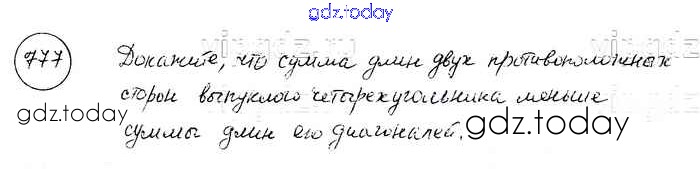 gdz.today
777 Докажите, что сумма длин двух противоположных
gdz.today сторон выпуклого четырехугольника меньше
суммы длин его диагоналей. gdz.today